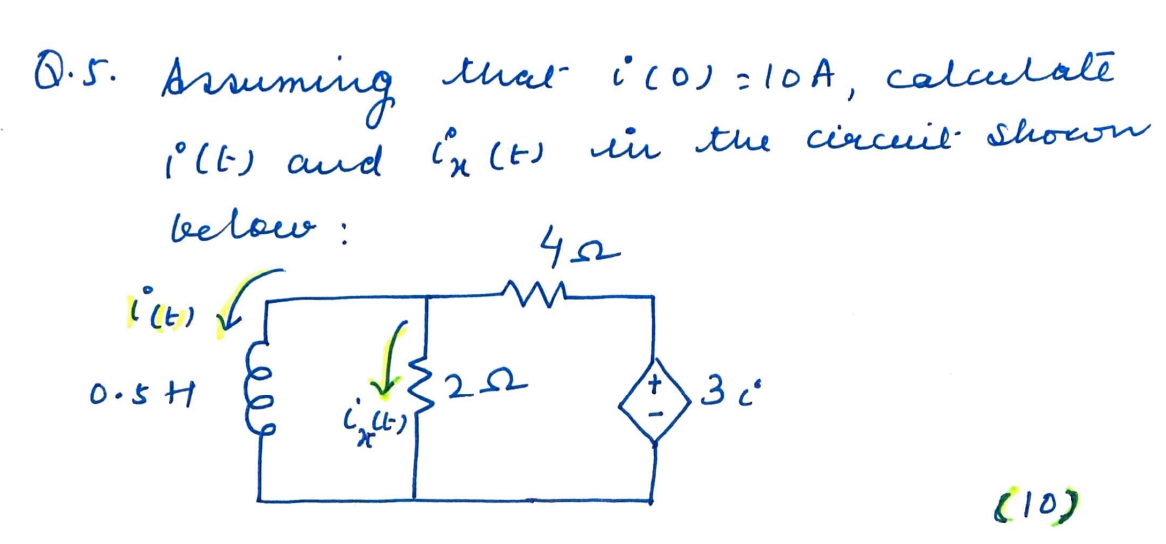 Q.5. Assuming that i(0) = 10A, calculate
i(t) and iₓ(t) in the circuit shown
below :
4Ω
i(t)
0.5 H
iₓ(t)
2Ω
+
-
3i
(10)